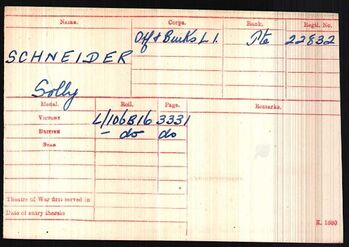 Name. Corps. Rank. Regtl. No.
SCHNEIDER Oxf & Bucks L.I. Pte 22832
Solly
Medal. Roll. Page. Remarks.
VICTORY L/106B16 3331
BRITISH – do do
STAR
Theatre of War first served in
Date of entry therein
K. 1380